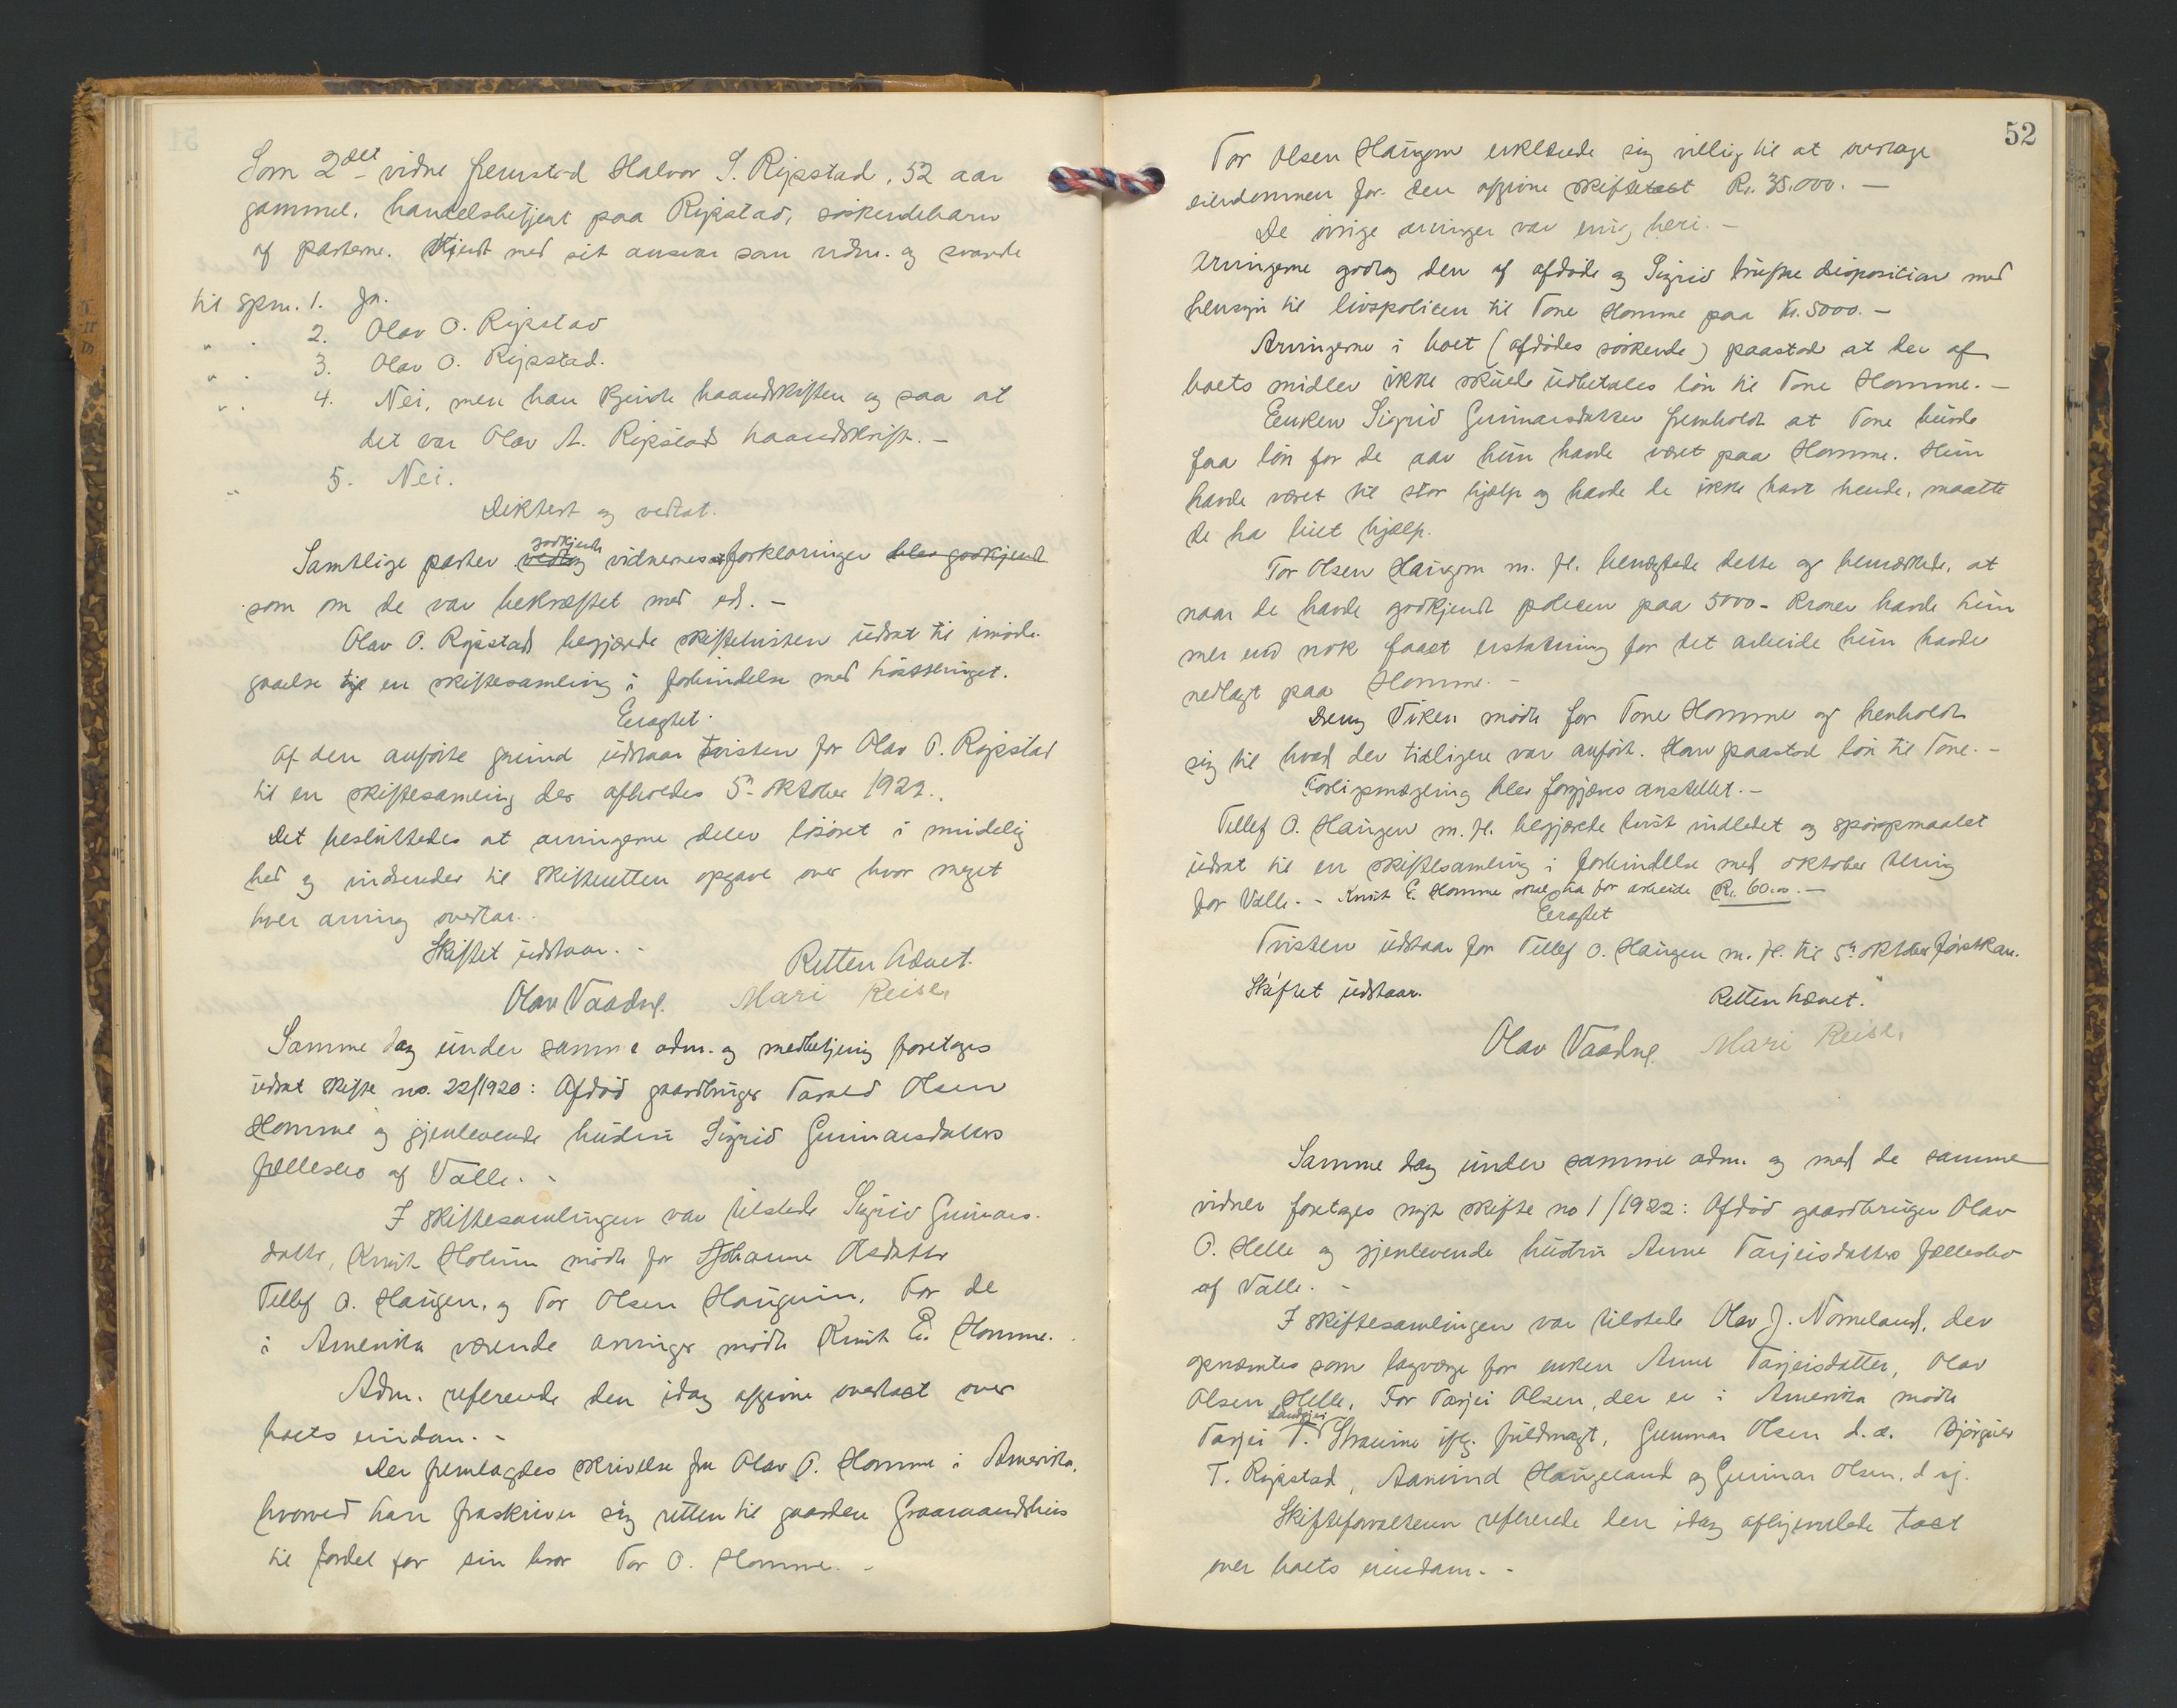 Som 2det vidne fremstod Halvor S. Rysstad, 52 aar
gammel, handelsbetjent paa Rysstad, søskendebarn
af parterne. Kjendt med sit ansvar som vidne og svarede
til spm. 1. Ja.
" . 2. Olav O. Rysstad
" . 3. Olav O. Rysstad.
" . 4. Nei, men han kjendte haandskriften og saa at
det var Olav A. Rysstads haandskrift. -
" 5. Nei.
Diktert og vedtat.
godkjendte
Samtlige parter vedtog vidnernes forklaringer blev godkjendt
som om de var bekræftet med ed. -
Olav O. Rysstad begjærede skiftetvisten utsat til imøde-
gaaelse til en skiftesamling i forbindelse med høsttinget.
Eragtet.
Af den anførte grund utstaar tvisten for Olav O. Rysstad
til en skiftesamling der afholdes 5te oktober 1922.
Det besluttedes at arvingerne deler løsøret i mindelig
hed og indsender til Skifteretten opgave over hvor meget
hver arving overtar.
Skiftet utstaar. -
Retten hævet.
Olav Vaadne. Mari Reiser
Samme dag under samme adm. og medbetjening foretages
utsat skifte no. 22/1920: Afdød gaardbruger Tarald Olsen
Homme og gjenlevende hustru Sigrid Gunnarsdatters
fællesbo af Valle. -
I skiftesamlingen var tilstede Sigrid Gunnars-
datter, Knut Holum mødte for Johanne Olsdatter
Tellef O. Haugen, og Tor Olsen Haugum. For de
i Amerika værende arvinger mødte Knut E. Homme.
Adm. refererede den idag afgivne overtast over
boets eiendom. -
Der fremlagdes skrivelse fra Olav O. Homme i Amerika,
hvorved han fraskriver sig retten til gaarden Graamandshus
til fordel for sin bror Tor O. Homme. -
52
Tor Olsen Haugom erklærede sig villig til at overtage
eiendommen for den afgivne skiftetast Kr. 35.000. -
De øvrige arvinger var enig heri. -
Arvingerne godtog den af afdøde og Sigrid trufne disposition med
hensyn til livspolicen til Tone Homme paa Kr. 5000. -
Arvingerne i boet (afdødes søskende) paastod at der af
boets midler ikke skulde utbetales løn til Tone Homme. -
Enken Sigrid Gunnarsdatter fremholdt at Tone burde
faa løn for de aar hun havde været paa Homme. Hun
havde været til stor hjælp og havde de ikke havt hende, maatte
de ha leiet hjælp.
Tor Olsen Haugom m. fl. benægtede dette og bemærkede, at
naar de havde godkjendt policen paa 5000 - kroner havde hun
mer end nok faaet erstatning for det arbeide hun havde
nedlagt paa Homme. -
Dreng Viken mødte for Tone Homme og henholdt
sig til hvad der tidligere var anført. Han paastod løn til Tone. -
Forligsmægling blev forgjæves anstillet. -
Tellef O. Haugen m. fl. begjærede tvist indledet og spørgsmaalet
utsat til en skiftesamling i forbindelse med oktober ting
for Valle. - Knut E. Homme skal ha for arbeide Kr. 60.00. -
Eragtet
Tvisten utstaar for Tellef O. Haugen m. fl. til 5te oktober førstkom.
Skiftet utstaar. Retten hævet.
Olav Vaadne. Mari Reiser
Samme dag under samme adm. og med de samme
vidner foretages nyt skifte no 1/1922: Afdød gaardbruger Olav
O. Helle og gjenlevende hustru Anne Tarjeisdatters fællesbo
af Valle. -
I skiftesamlingen var tilstede Olav J. Nomeland, der
opnævntes som lagværge for enken Anne Tarjeisdatter, Olav
Olsen Helle. For Tarjei Olsen, der er i Amerika mødte
Tarjei T. Straume iflg. fuldmagt, Gunnar Olsen d. æ. Bjørgulv
T. Rysstad, Aanund Haugeland og Gunnar Olsen, d. y.
Skifteforvalteren refererede den idag afhjemlede tast
over boets eiendom. -